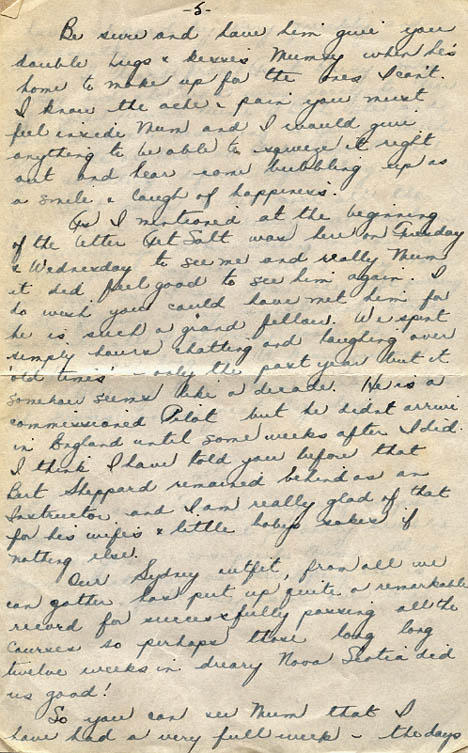 -5-
Be sure and have him give you
double hugs & kisses Mumsy when he's
home to make up for the ones I can't.
I know the ache & pain you must
feel inside Mum and I would give
anything to be able to squeeze it right
out and hear some bubbling up as
a smile & laugh of happiness.
As I mentioned at the beginning
of the letter Art Salt was here on Tuesday
& Wednesday to see me and really Mum
it did feel good to see him again. I
do wish you could have met him for
he is such a grand fellow. We spent
simply hours chatting and laughing over
'old times' - only the past year but it
somehow seems like a decade. He is a
commissioned Pilot but he didnt arrive
in England until some weeks after I did.
I think I have told you before that
Bert Sheppard remained behind as an
Instructor and I am really glad of that
for his wife's & little babys sakes if
nothing else.
Our Sydney outfit, from all we
can gather has put up quite a remarkable
record for successfully passing all the
courses so perhaps those long long
twelve weeks in dreary Nova Scotia did
us good!
So you can see Mum that I
have had a very full week - the days